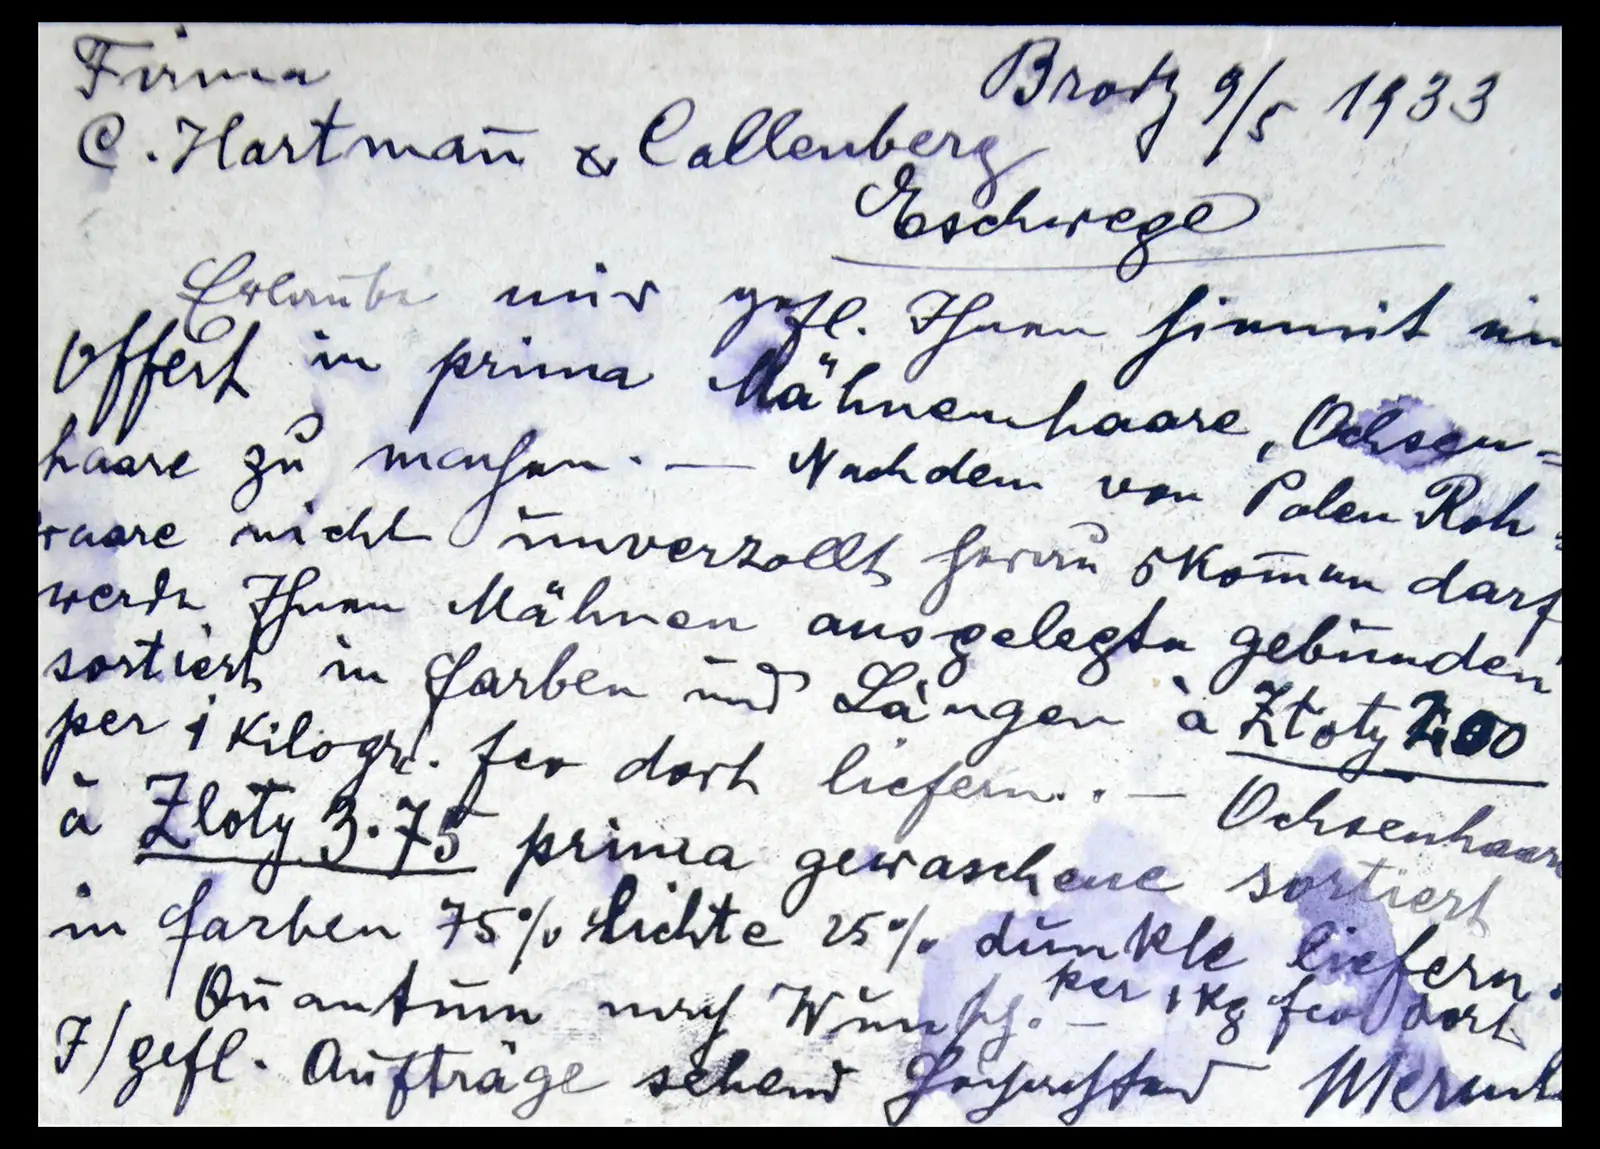 Firma
Brody 9/5 1933
C. Hartmann̄ & Callenberg
Eschwege
Erlaube mir gefl. Ihnen hiermit ein
Offert in prima Mähnenhaare, Ochsen=
haare zu machen. — Nachdem von Polen Roh=
waare nicht unverzollt heraus kom̄en darf
werde Ihnen Mähnen ausgelegte gebunden
sortiert in Farben und Längen à Zloty
per 1 Kilogr. fco dort liefern. . — Ochsenhaare
à Zloty 3.75 prima gewaschene sortiert
in Farben 75% lichte 25% dunkle liefern.
per 1 Kg fco dort
Quantum nach Wunsch. —
I/ gefl. Aufträge sehend Hochachtend